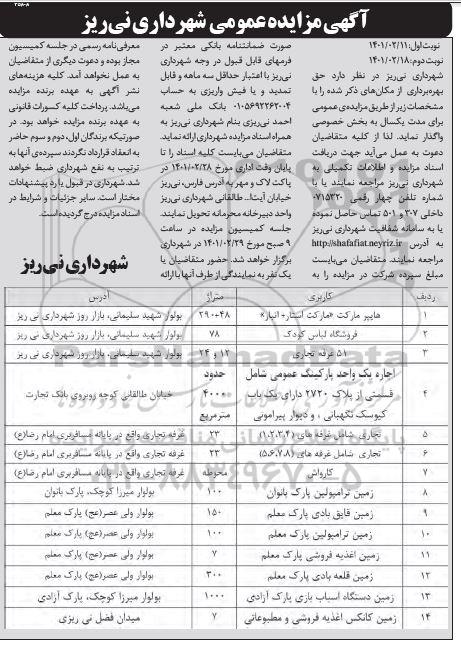 آگهی مزایده عمومی شهرداری نی‌ریز
نوبت اول: ۱۴۰۱/۰۲/۱۱
نوبت دوم: ۱۴۰۱/۰۲/۱۸
شهرداری نی‌ریز در نظر دارد حق
بهره‌برداری از مکان‌های ذکر شده را با
مشخصات زیر از طریق مزایده‌ی عمومی
برای مدت یکسال به بخش خصوصی
واگذار نماید. لذا از کلیه متقاضیان
دعوت به عمل می‌آید جهت دریافت
اسناد مزایده و اطلاعات تکمیلی به
شهرداری نی‌ریز مراجعه نمایند یا با
شماره تلفن چهار رقمی ۰۷۱۵۳۲۰
داخلی ۳۰۷ و ۵۰۱ تماس حاصل نموده
یا به سامانه شفافیت شهرداری نی‌ریز
به آدرس http://shafafiat.neyriz.ir
مراجعه نمایند. متقاضیان می‌بایست
مبلغ سپرده شرکت در مزایده را به
صورت ضمانتنامه بانکی معتبر در
فرمهای قابل قبول در وجه شهرداری
نی‌ریز با اعتبار حداقل سه ماهه و قابل
تمدید و یا فیش واریزی به حساب
۰۱۰۵۶۹۲۲۶۲۰۰۴ بانک ملی شعبه
احمد نی‌ریزی بنام شهرداری نی‌ریز به
همراه اسناد مزایده شهرداری ارائه نماید.
متقاضیان می‌بایست کلیه اسناد را تا
پایان وقت اداری مورخ ۱۴۰۱/۰۲/۲۸ در
پاکت لاک و مهر به آدرس فارس، نی‌ریز
خیابان آیت‌ا... طالقانی شهرداری نی‌ریز،
واحد دبیرخانه محرمانه تحویل نمایند.
جلسه کمیسیون مزایده در ساعت
۹ صبح مورخ ۱۴۰۱/۰۲/۲۹ در شهرداری
برگزار خواهد شد. حضور متقاضیان یا
یک نفر به نمایندگی از طرف آنها با ارائه
معرفی‌نامه رسمی در جلسه کمیسیون
مجاز بوده و دعوت دیگری از متقاضیان
به عمل نخواهد آمد. کلیه هزینه‌های
نشر آگهی به عهده برنده مزایده
می‌باشد. پرداخت کلیه کسورات قانونی
به عهده برنده مزایده خواهد بود. در
صورتیکه برندگان اول، دوم و سوم حاضر
به انعقاد قرارداد نگردند سپرده‌ی آنها به
ترتیب به نفع شهرداری ضبط خواهد
شد. شهرداری در قبول یا رد پیشنهادات
مختار است. سایر جزئیات و شرایط در
اسناد مزایده درج گردیده است.
شهرداری نی‌ریز
ردیف کاربری متراژ آدرس
۱ هایپر مارکت «مارکت استار» انبار» ۲۹۰+۴۸ بولوار شهید سلیمانی، بازار روز شهرداری نی ریز
۲ فروشگاه لباس کودک ۷۸ بولوار شهید سلیمانی، بازار روز شهرداری نی ریز
۳ ۵۱ غرفه تجاری ۱۲ و ۲۴ بولوار شهید سلیمانی، بازار روز شهرداری نی ریز
۴ اجاره یک واحد پارکینگ عمومی شامل قسمتی از پلاک ۲۷۲۰ دارای یک باب کیوسک نگهبانی، و دیوار پیرامونی حدود ۴۰۰۰ مترمربع خیابان طالقانی کوچه روبروی بانک تجارت
۵ تجاری شامل غرفه های (۱،۲،۳،۴) ۲۳ غرفه تجاری واقع در پایانه مسافربری امام رضا(ع)
۶ تجاری شامل غرفه های (۵،۶،۷،۸) ۲۳ غرفه تجاری واقع در پایانه مسافربری امام رضا(ع)
۷ کارواش محوطه غرفه تجاری واقع در پایانه مسافربری امام رضا(ع)
۸ زمین ترامپولین پارک بانوان ۱۰۰ بولوار میرزا کوچک، پارک بانوان
۹ زمین قایق بادی پارک معلم ۱۵۰ بولوار ولی عصر(عج) پارک معلم
۱۰ زمین ترامپولین پارک معلم ۱۰۰ بولوار ولی عصر(عج) پارک معلم
۱۱ زمین اغذیه فروشی پارک معلم ۷ بولوار ولی عصر(عج) پارک معلم
۱۲ زمین قلعه بادی پارک معلم ۳۰۰ بولوار ولی عصر(عج) پارک معلم
۱۳ زمین دستگاه اسباب بازی پارک آزادی ۱۰۰۰ بولوار میرزا کوچک، پارک آزادی
۱۴ زمین کانکس اغذیه فروشی و مطبوعاتی ۷ میدان فضل نی ریزی